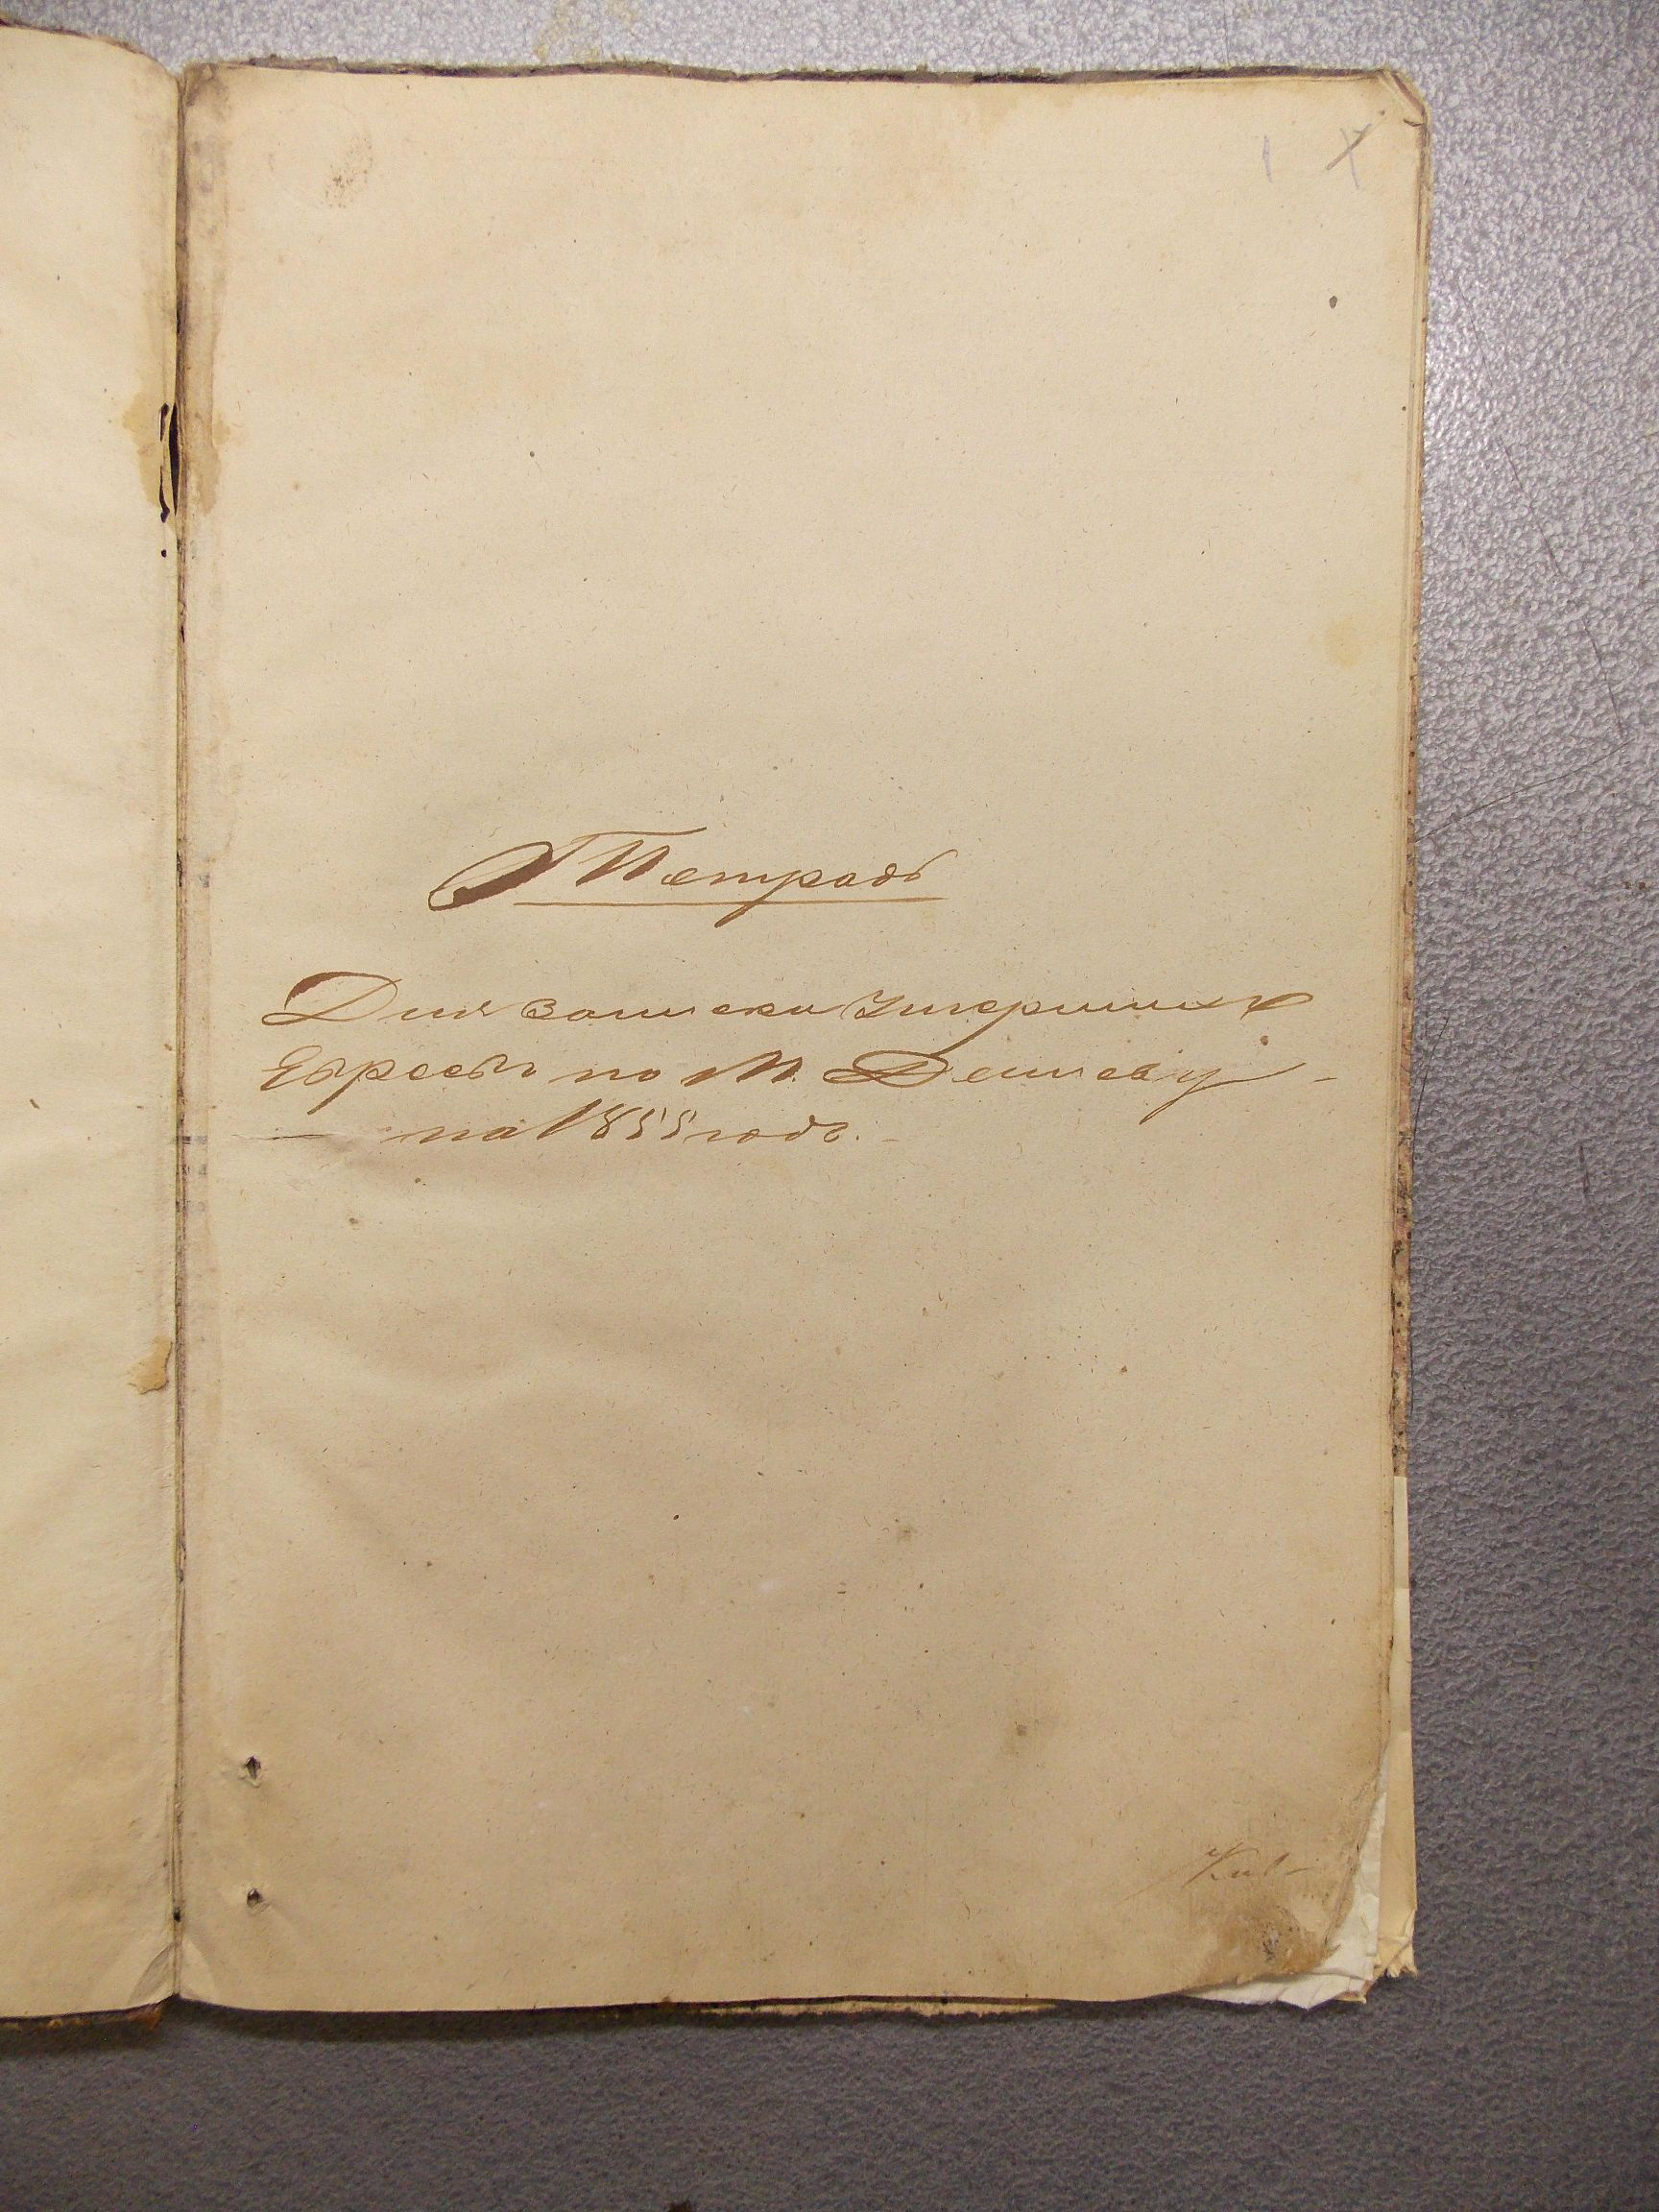 1
Тетрадь
Для записки Умершихъ
Евреевъ по М. Дешеву
на 1855 годъ.